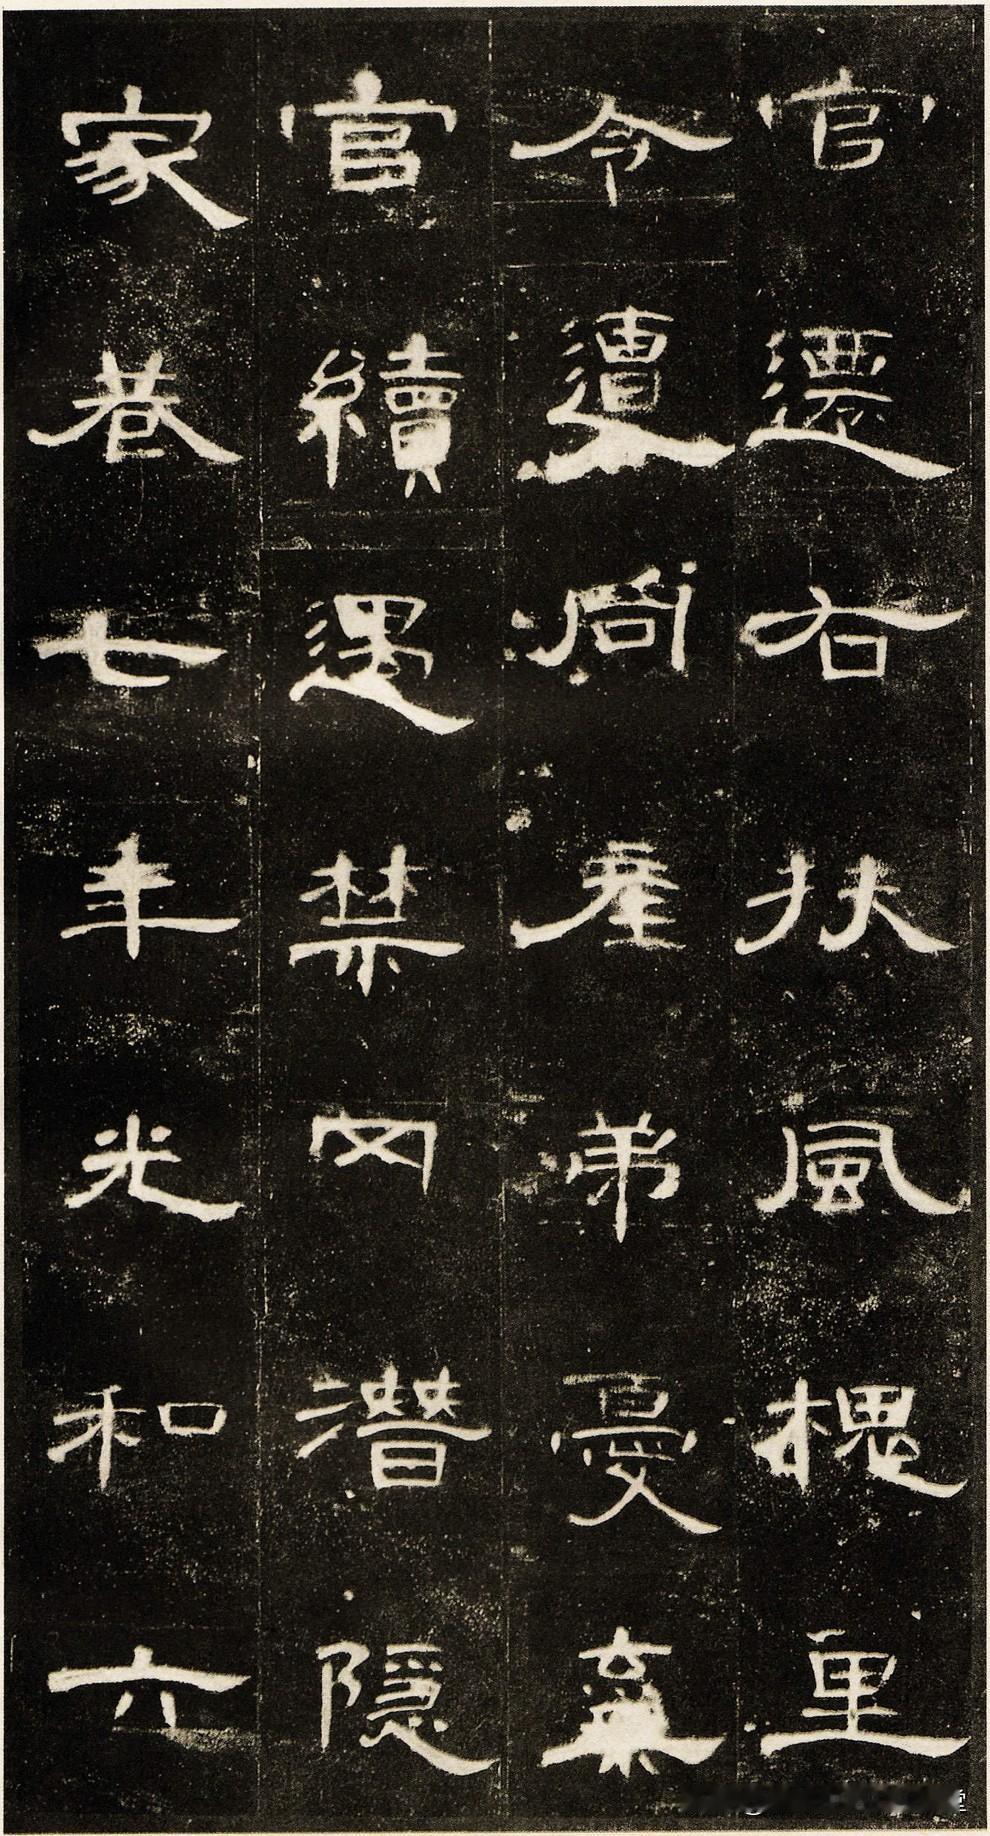 官遷右扶風槐里
令遭同産弟憂棄
官續遇禁网潛隱
家巷七年光和六